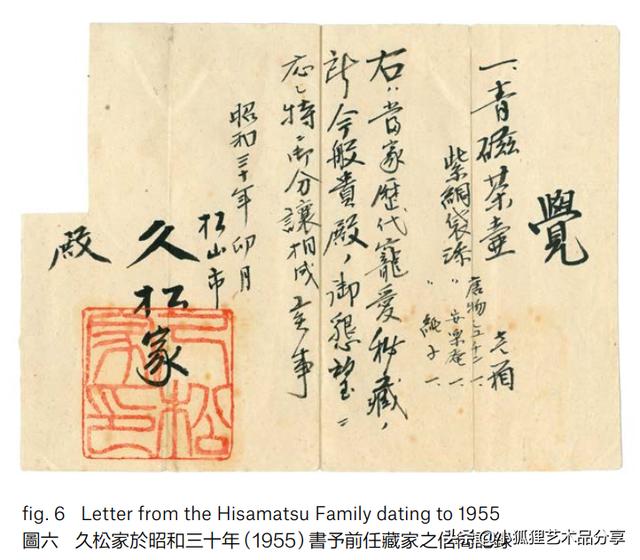 覺
一、青磁茶壷
紫綱袋添
唐物
〃 安樂庵 一、
純子 一、
右ハ當家歴代寵愛秘藏ノ
今般貴殿ノ御懇望ニ
応し特ニ御分讓相成 事
昭和三十年卯月
松山市
久松家
殿
久松家印
fig. 6 Letter from the Hisamatsu Family dating to 1955
圖六 久松家於昭和三十年(1955)書予前任藏家之信簡
头条@小狐狸艺术品分享